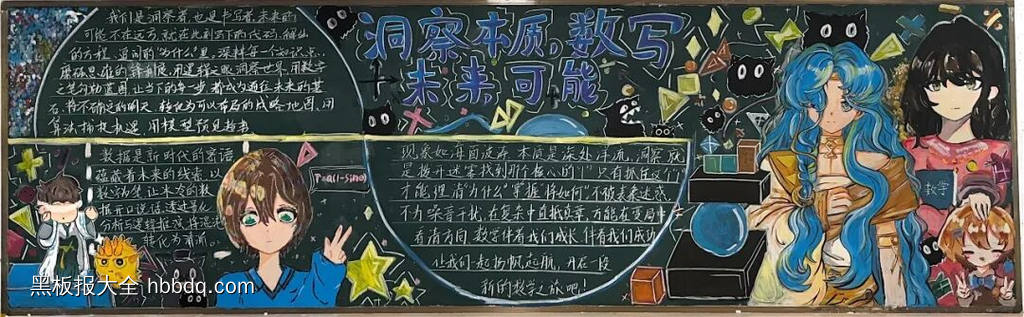 洞察本质,数写
未来可能
我们是洞察者,也是书写者,未来的
可能不在远方,就在此刻写下的代码,解出
的方程,追问的"为什么"里,深耕每一个知识点,
磨砺思维的锋利,用逻辑之眼洞察世界,用数学
之笔勾勒蓝图,让当下的每一步都成为通往未来的基
石,将不确定的明天,转化为可以布局的战略地图,用
算法捕捉机遇,用模型预见趋势
数据是新时代的密语
蕴藏着未来的线索,以
数字为笔,让本冷的数
据开口说话,透过量化
分析与逻辑推演,将混沌
转化为清流。
现象如海面波涛,本质是深处洋流,洞察,就
是拨开迷雾找到那个核心的"1",只有抓住这个"1"
才能把"为什么"掌握,将"如何"不被表象迷惑,
不为噪音干扰,在复杂中直抵真章,方能在变局中
看清方向,数学伴着我们成长,伴着我们成功
让我们一起扬帆起航,开启一段
新的数学之旅吧!
数学
黑板报大全 hbbdq.com